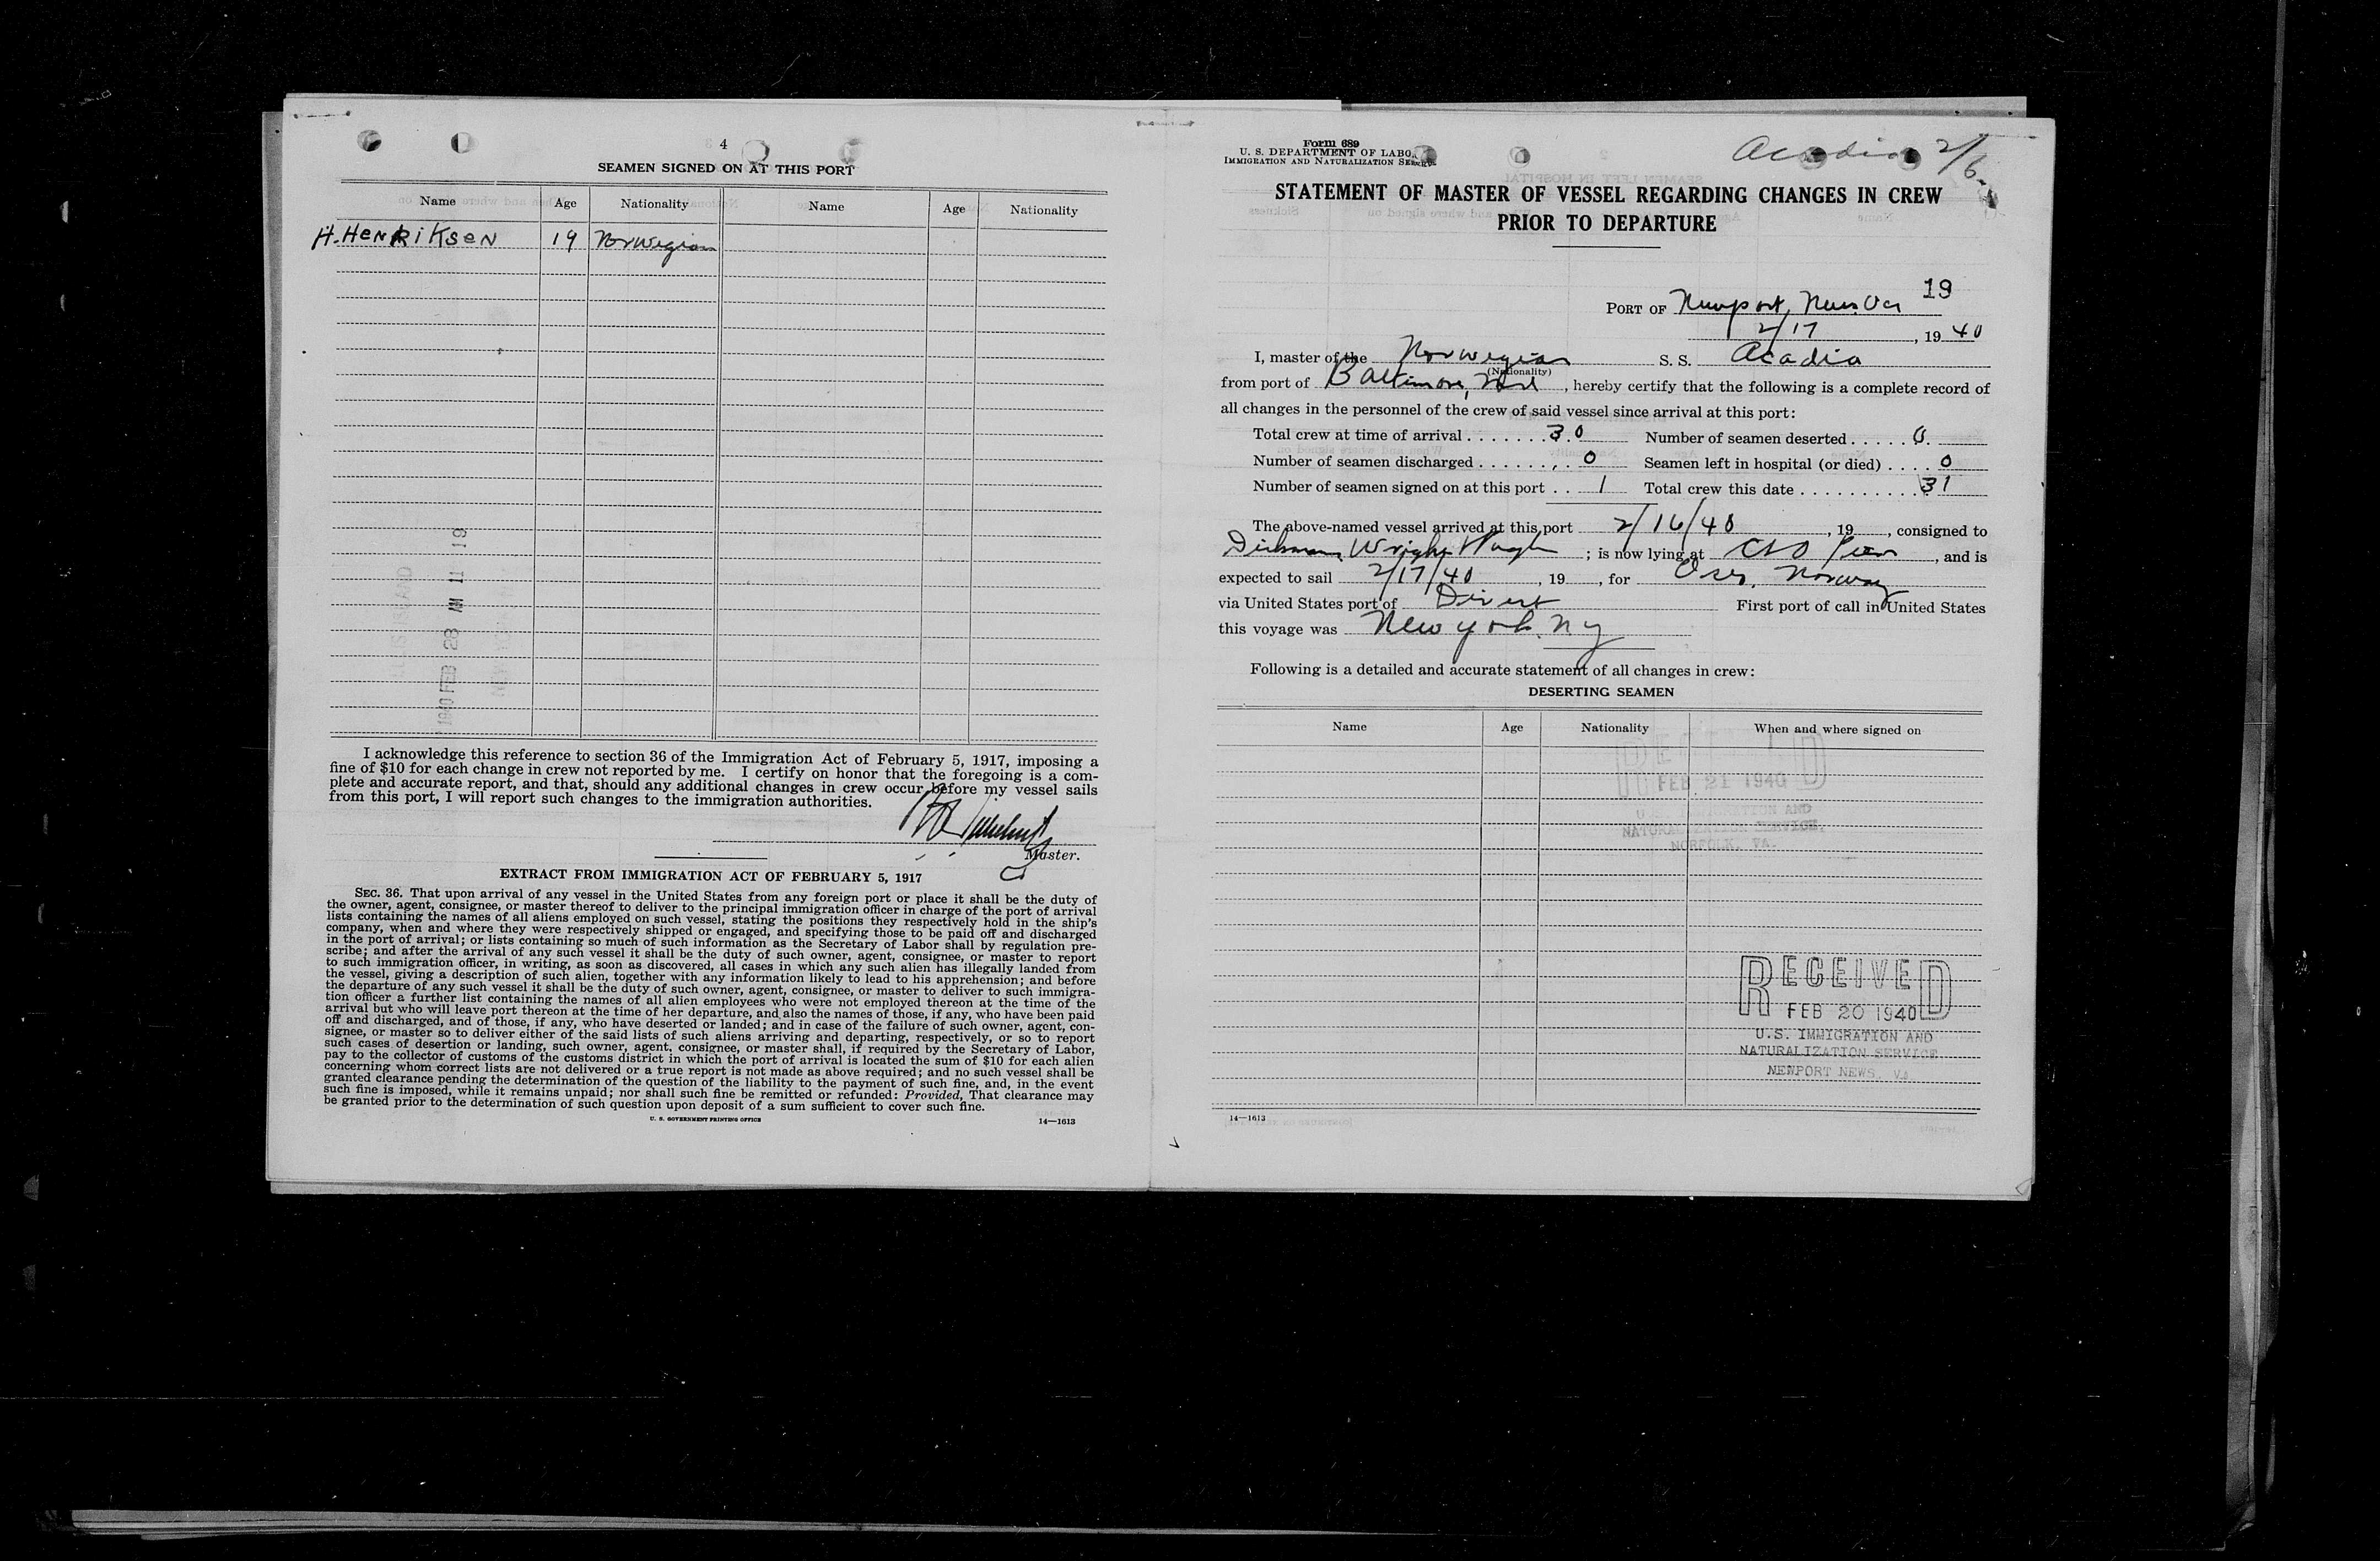 4
SEAMEN SIGNED ON AT THIS PORT
Name Age Nationality Name Age Nationality
H. HENRIKSEN 19 Norwegian
1940 FEB 28 AM 11 19
I acknowledge this reference to section 36 of the Immigration Act of February 5, 1917, imposing a
fine of $10 for each change in crew not reported by me. I certify on honor that the foregoing is a com-
plete and accurate report, and that, should any additional changes in crew occur before my vessel sails
from this port, I will report such changes to the immigration authorities.
Master.
EXTRACT FROM IMMIGRATION ACT OF FEBRUARY 5, 1917
SEC. 36. That upon arrival of any vessel in the United States from any foreign port or place it shall be the duty of
the owner, agent, consignee, or master thereof to deliver to the principal immigration officer in charge of the port of arrival
lists containing the names of all aliens employed on such vessel, stating the positions they respectively hold in the ship's
company, when and where they were respectively shipped or engaged, and specifying those to be paid off and discharged
in the port of arrival; or lists containing so much of such information as the Secretary of Labor shall by regulation pre-
scribe; and after the arrival of any such vessel it shall be the duty of such owner, agent, consignee, or master to report
to such immigration officer, in writing, as soon as discovered, all cases in which any such alien has illegally landed from
the vessel, giving a description of such alien, together with any information likely to lead to his apprehension; and before
the departure of any such vessel it shall be the duty of such owner, agent, consignee, or master to deliver to such immigra-
tion officer a further list containing the names of all alien employees who were not employed thereon at the time of the
arrival but who will leave port thereon at the time of her departure, and also the names of those, if any, who have been paid
off and discharged, and of those, if any, who have deserted or landed; and in case of the failure of such owner, agent, con-
signee, or master so to deliver either of the said lists of such aliens arriving and departing, respectively, or so to report
such cases of desertion or landing, such owner, agent, consignee, or master shall, if required by the Secretary of Labor,
pay to the collector of customs of the customs district in which the port of arrival is located the sum of $10 for each alien
concerning whom correct lists are not delivered or a true report is not made as above required; and no such vessel shall be
granted clearance pending the determination of the question of the liability to the payment of such fine, and, in the event
such fine is imposed, while it remains unpaid; nor shall such fine be remitted or refunded: Provided, That clearance may
be granted prior to the determination of such question upon deposit of a sum sufficient to cover such fine.
U. S. GOVERNMENT PRINTING OFFICE 14—1613
Form 689
U. S. DEPARTMENT OF LABOR
IMMIGRATION AND NATURALIZATION SERVICE
Acadia 2/6
STATEMENT OF MASTER OF VESSEL REGARDING CHANGES IN CREW
PRIOR TO DEPARTURE
19
PORT OF Newport News Va
2/17, 19 40
I, master of the Norwegian S. S. Acadia
(Nationality)
from port of Baltimore, Md, hereby certify that the following is a complete record of
all changes in the personnel of the crew of said vessel since arrival at this port:
Total crew at time of arrival 30 Number of seamen deserted 0
Number of seamen discharged 0 Seamen left in hospital (or died) 0
Number of seamen signed on at this port 1 Total crew this date 31
The above-named vessel arrived at this port 2/16/40, 19 , consigned to
Wright ; is now lying at C&O Pier, and is
expected to sail 2/17/40, 19 , for Norway
via United States port of Direct First port of call in United States
this voyage was New York, NY
Following is a detailed and accurate statement of all changes in crew:
DESERTING SEAMEN
Name Age Nationality When and where signed on
RECEIVED
FEB 21 1940
U.S. IMMIGRATION AND
NATURALIZATION SERVICE,
NORFOLK, VA.
RECEIVED
FEB 20 1940
U.S. IMMIGRATION AND
NATURALIZATION SERVICE
NEWPORT NEWS, VA.
14—1613